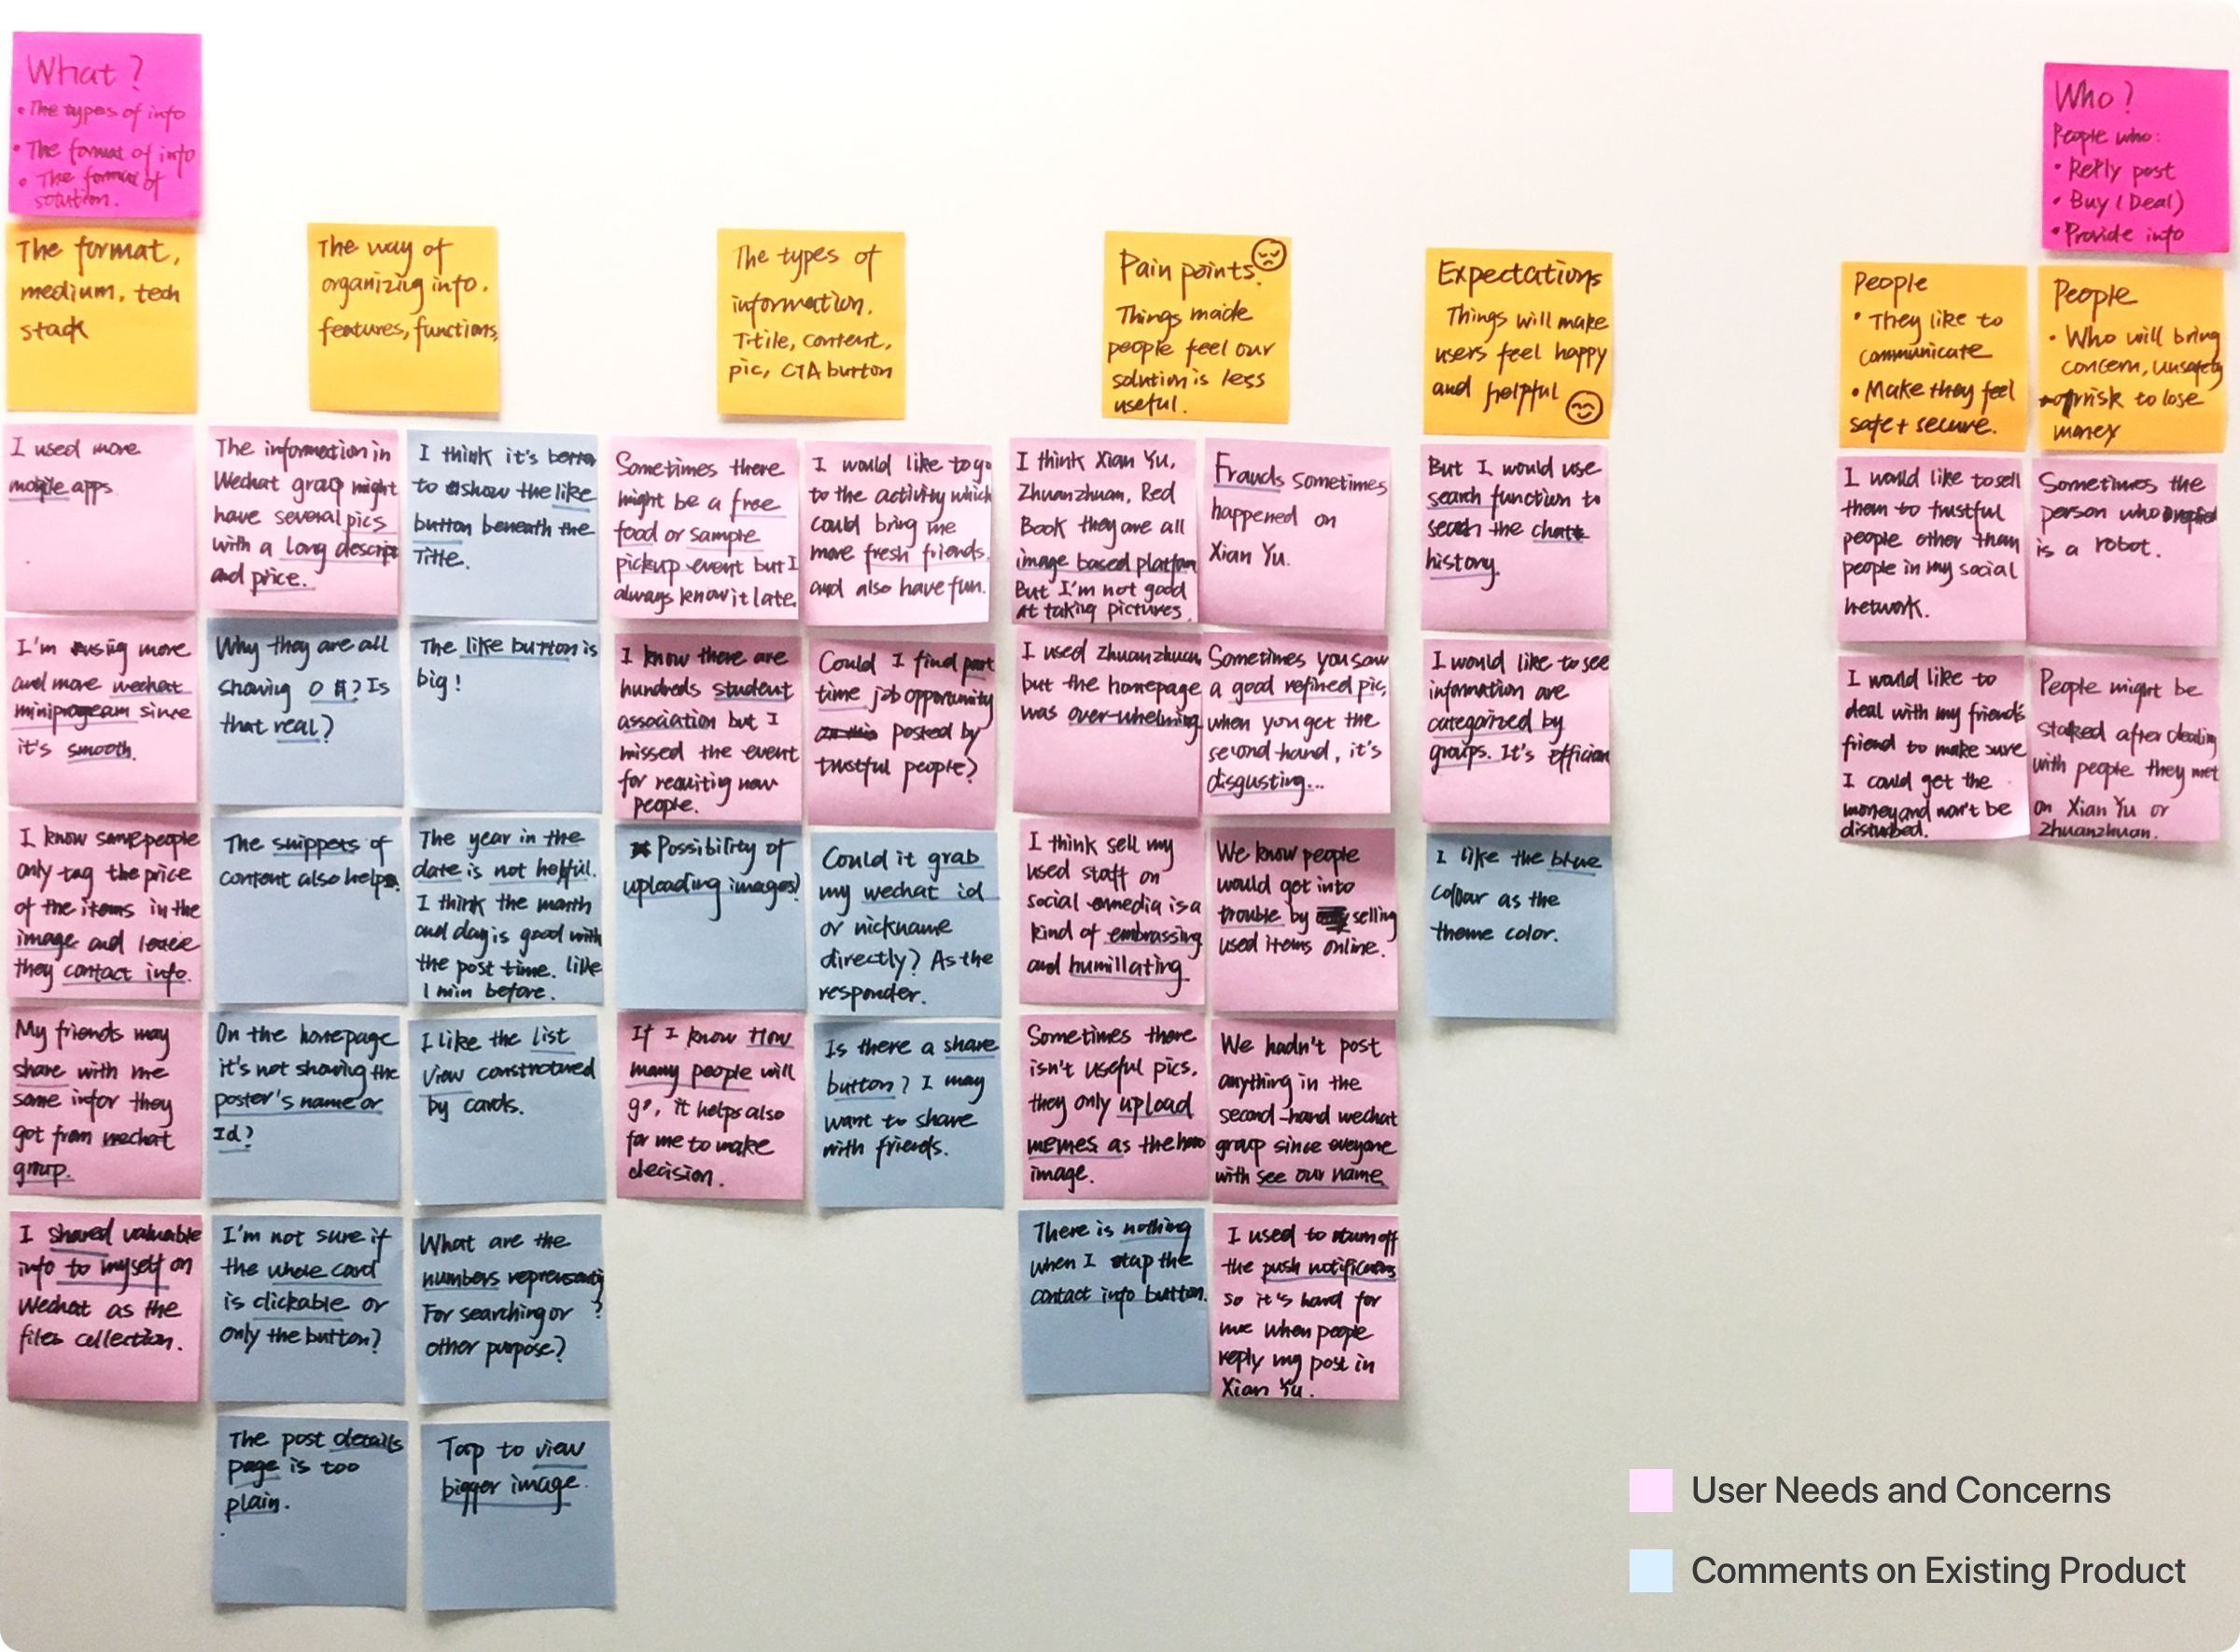 What?
• The types of info
• The format of info
• The format of
solution.
The format,
medium, tech
stack
I used more
mobile apps.
I'm using more
and more wechat
miniprogram since
it's smooth.
I know some people
only tag the price
of the items in the
image and leave
they contact info.
My friends may
share with me
some infor they
got from wechat
group.
I shared valuable
info to myself on
Wechat as the
files collection.
The way of
organizing info.
features, functions,
The information in
Wechat group might
have several pics
with a long descript
and price.
Why they are all
showing 0 ? Is
that real?
The snippets of
content also helps.
On the homepage
it's not showing the
poster's name or
Id?
I'm not sure if
the whole card
is clickable or
only the button?
The post details
page is too
plain.
I think it's better
to show the like
button beneath the
Title.
The like button is
big!
The year in the
date is not helpful.
I think the month
and day is good with
the post time. like
1 min before.
I like the list
view constructured
by cards.
What are the
numbers representing
For searching or ?
other purpose?
Tap to view
bigger image.
The types of
information.
Titile, content,
pic, CTA button
Sometimes there
might be a free
food or sample
pickup event but I
always know it late.
I know there are
hundreds student
association but I
missed the event
for requiting new
people.
Possibility of
uploading images?
If I know How
many people will
go, it helps also
for me to make
decision.
I would like to go
to the activity which
could bring me
more fresh friends.
and also have fun.
Could I find part
time job opportunity
posted by
trustful people?
Could it grab
my wechat id
or nickname
directly? As the
responder.
Is there a share
button? I may
want to share
with friends.
Pain points.
Things made
people feel our
solution is less
useful.
I think Xian Yu,
Zhuanzhuan, Red
Book they are all
image based platform
But I'm not good
at taking pictures.
I used zhuanzhuan,
but the homepage
was over-whelming
I think sell my
used staff on
social media is a
kind of embrassing
and humillating
Sometimes there
isn't useful pics,
they only upload
memes as the hero
image.
There is nothing
when I tap the
contact info button.
Frauds sometimes
happened on
Xian Yu.
Sometimes you saw
a good refined pic,
when you get the
second-hand, it's
disgusting...
We know people
would get into
trouble by selling
used items online.
We hadn't post
anything in the
second-hand wechat
group since everyone
with see our name
I used to turn off
the push notifications
so it's hard for
me when people
reply my post in
Xian Yu.
Expectations
Things will make
users feel happy
and helpful
But I would use
search function to
seach the chat
history.
I would like to see
information are
categorized by
groups. It's effician
I like the blue
colour as the
theme color.
Who?
People who:
• Reply post
• Buy (Deal)
• Provide info
People
• They like to
communicate
• Make they feel
safe + secure.
I would like to sell
them to trustful
people other than
people in my social
network.
I would like to
deal with my friend's
friend to make sure
I could get the
money and won't be
disturbed.
People
• Who will bring
concern, unsafety
or risk to lose
money
Sometimes the
person who
is a robot.
People might be
stalked after dealing
with people they met
on Xian Yu or
Zhuanzhuan.
User Needs and Concerns
Comments on Existing Product